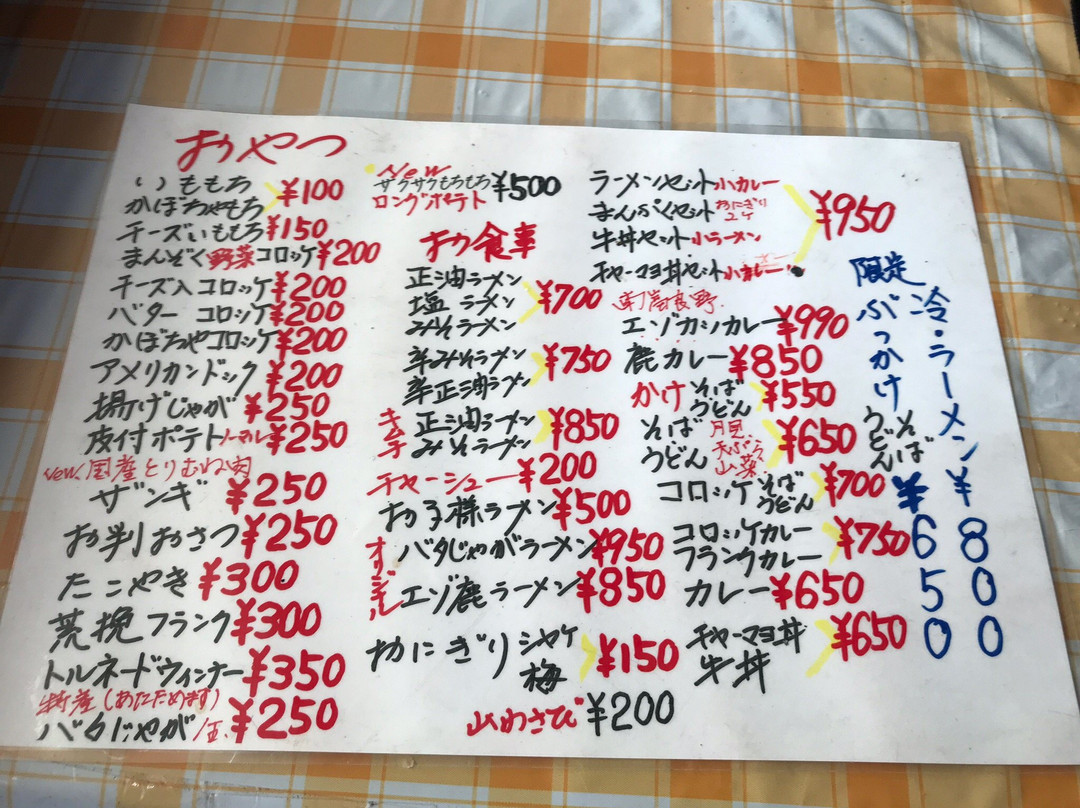 おやつ
いももち
かぼちゃもち ¥100
チーズいももち ¥150
まんぞく野菜コロッケ ¥200
チーズ入コロッケ ¥200
バターコロッケ ¥200
かぼちゃコロッケ ¥200
アメリカンドック ¥200
揚げじゃが ¥250
皮付ポテトノーマル ¥250
New 国産とりむね肉
ザンギ ¥250
お判おさつ ¥250
たこやき ¥300
荒挽フランク ¥300
トルネードウィンナー ¥350
(あたためます)
バタじゃが ¥250
New
サクサクもちもち
ロングポテト ¥500
お食事
正油ラーメン
塩ラーメン ¥700
みそラーメン
辛みそラーメン
辛正油ラーメン ¥750
正油ラーメン
みそラーメン ¥850
チャーシュー ¥200
お子様ラーメン ¥500
バタじゃがラーメン ¥950
エゾ鹿ラーメン ¥850
おにぎり シャケ
梅 ¥150
山わさび ¥200
ラーメンセット 小カレー
まんぷくセット おにぎり2ケ
牛丼セット 小ラーメン
チャーマヨ丼セット 小カレー
¥950
エゾカシカレー ¥990
鹿カレー ¥850
かけ そば
うどん ¥550
そば
うどん 月見
天ぷら
山菜 ¥650
コロッケ そば
うどん ¥700
コロッケカレー
フランクカレー ¥750
カレー ¥650
チャーマヨ丼
牛丼 ¥650
限定
冷・ラーメン ¥800
ぶっかけ そば
うどん ¥650